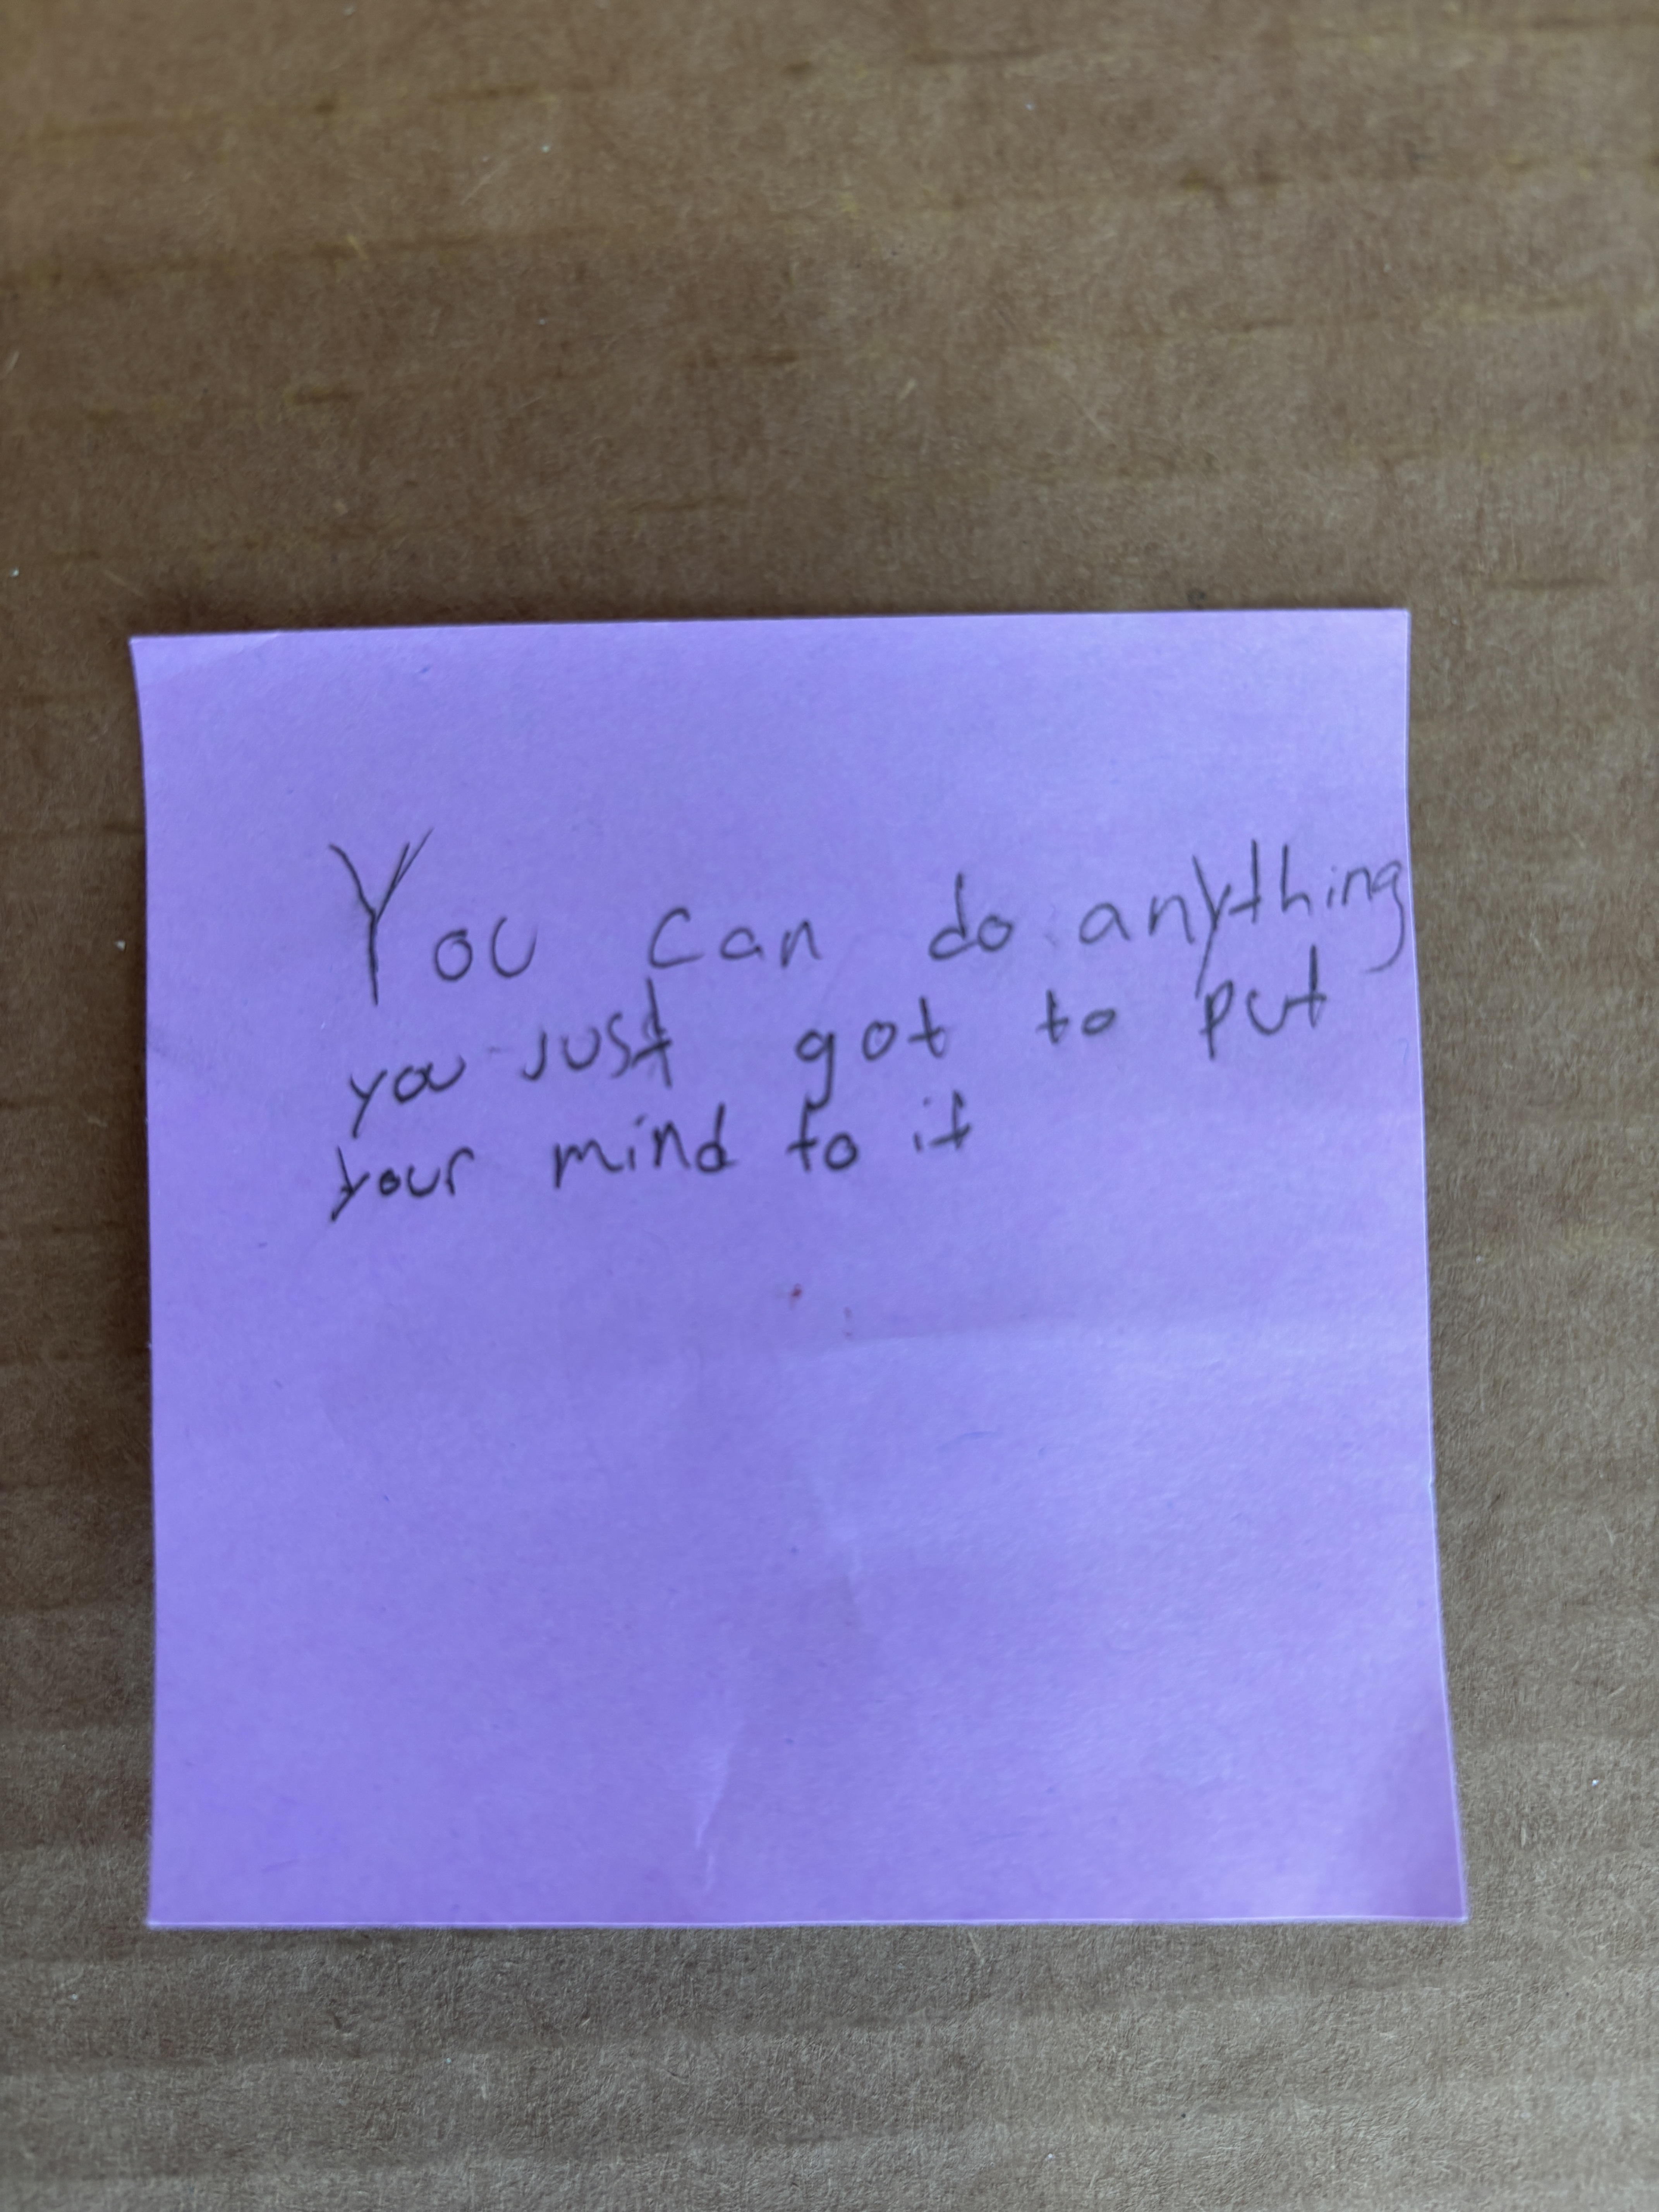 You can do anything
you just got to put
your mind to it